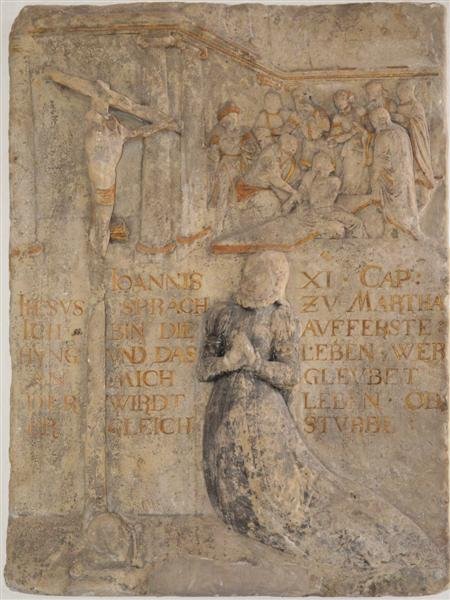 IOANNIS XI · CAP :
IHESVS SPRACH ZV MARTHA
ICH BIN DIE AVFFERSTE :
HVNG VND DAS LEBEN · WER
AN MICH GLEVBET
DER WIRDT LEBEN · OB
ER GLEICH STVRBE :